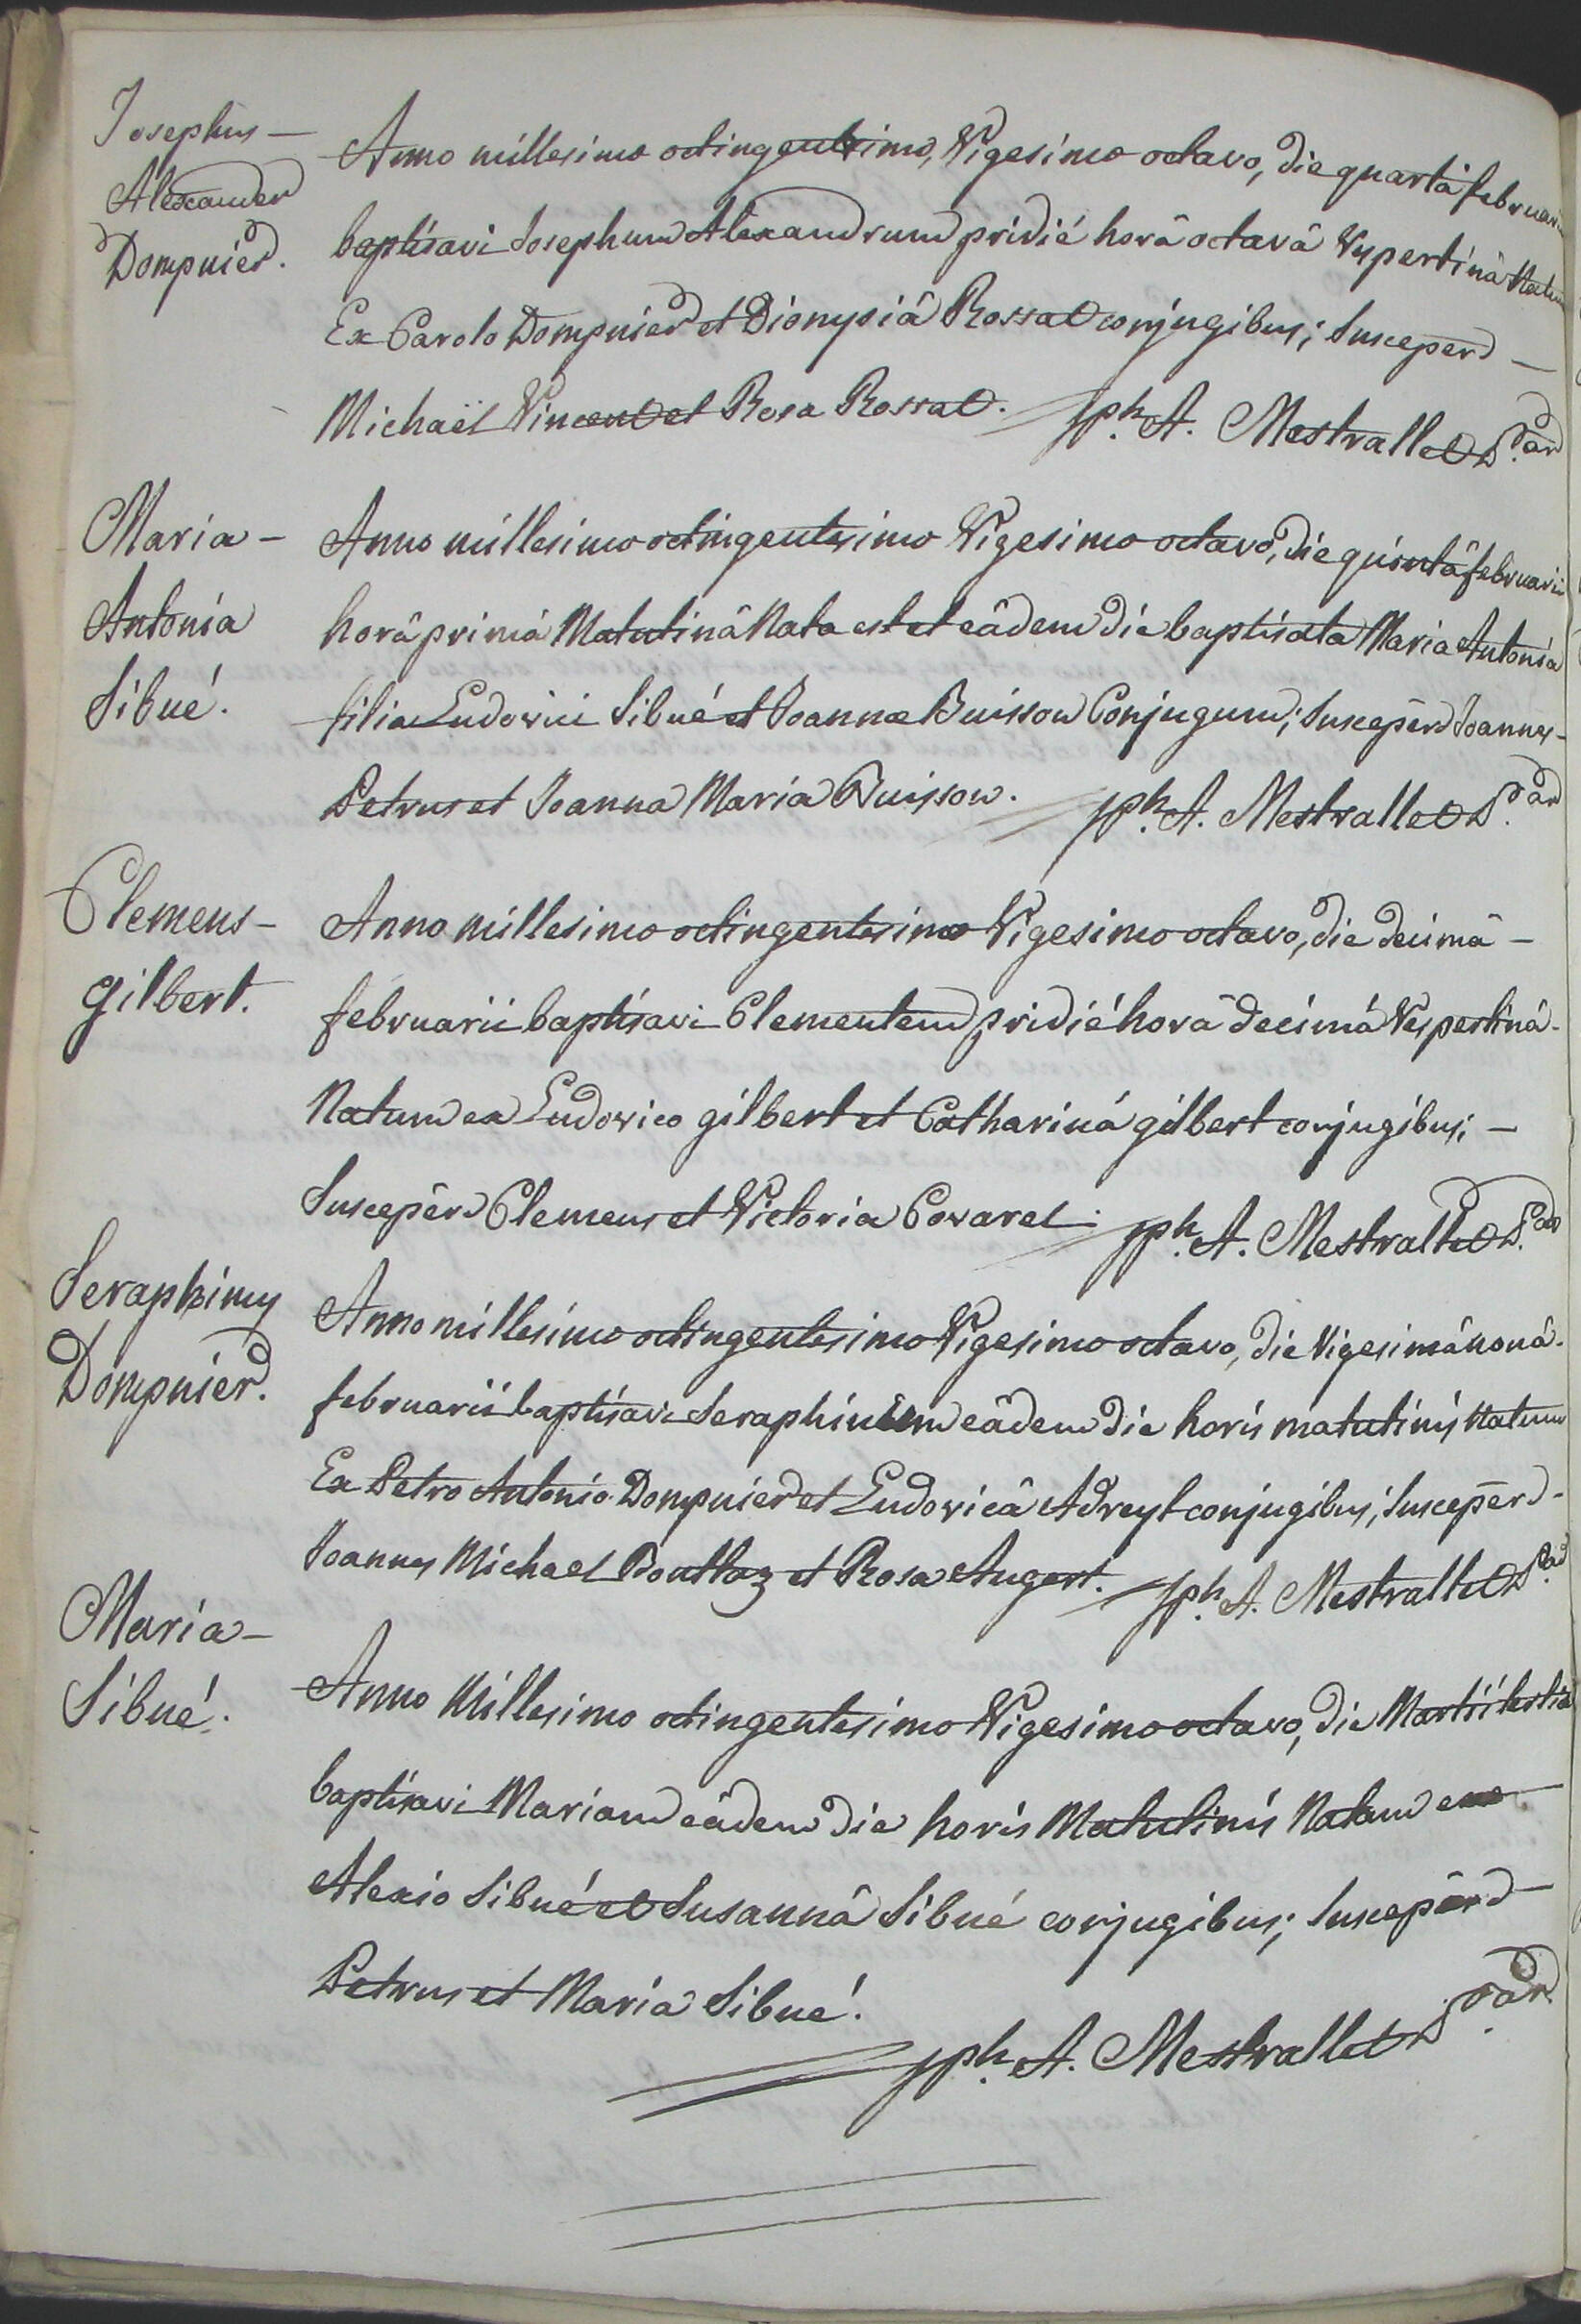 Josephus –
Alexander
Dompnier.
Anno millesimo octingentesimo, Vigesimo octavo, die quartâ februarii
baptisavi Josephum Alexandrum pridié horâ octavâ Vespertinâ Natum
Ex Carolo Dompnier et Dionysiâ Rossat conjugibus; Susceper̄ –
Michaël Vincent et Rosa Rossat. Jph. A. Mestrallet P. ār
Maria –
Antonia
Sibué.
Anno millesimo octingentesimo Vigesimo octavo, die quintâ februarii
horâ primâ Matutinâ Nata est et eâdem die baptisata Maria Antonia
filia Ludovici Sibué et Joannæ Buisson Conjugum; Suscepēr Joannes –
Petrus et Joanna Maria Buisson. Jph. A. Mestrallet P. ār
Clemens –
gilbert.
Anno millesimo octingentesimo Vigesimo octavo, die decimâ –
februarii baptisavi Clementem pridié horâ decimâ Vespertinâ –
Natum ex Ludovico gilbert et Catharinâ gilbert conjugibus; –
Suscepēr Clemens et Victoria Covarel. Jph. A. Mestrallet P. ār
Seraphinus
Dompnier.
Anno millesimo octingentesimo Vigesimo octavo, die Vigesimâ nonâ –
februarii baptisavi Seraphinum eâdem die horis matutinis Natum
Ex Petro Antonio Dompnier et Ludovicâ Adreyt conjugibus; Suscepēr –
Joannes Michael Bouttaz et Rosa Augert. Jph. A. Mestrallet P. ār
Maria –
Sibué.
Anno Millesimo octingentesimo Vigesimo octavo, die Martii tertiâ
baptisavi Mariam eâdem die horis Matutinis Natam ex –
Alexio Sibué et Susannâ Sibué conjugibus; Suscepēr –
Petrus et Maria Sibué.
Jph. A. Mestrallet P. ār.